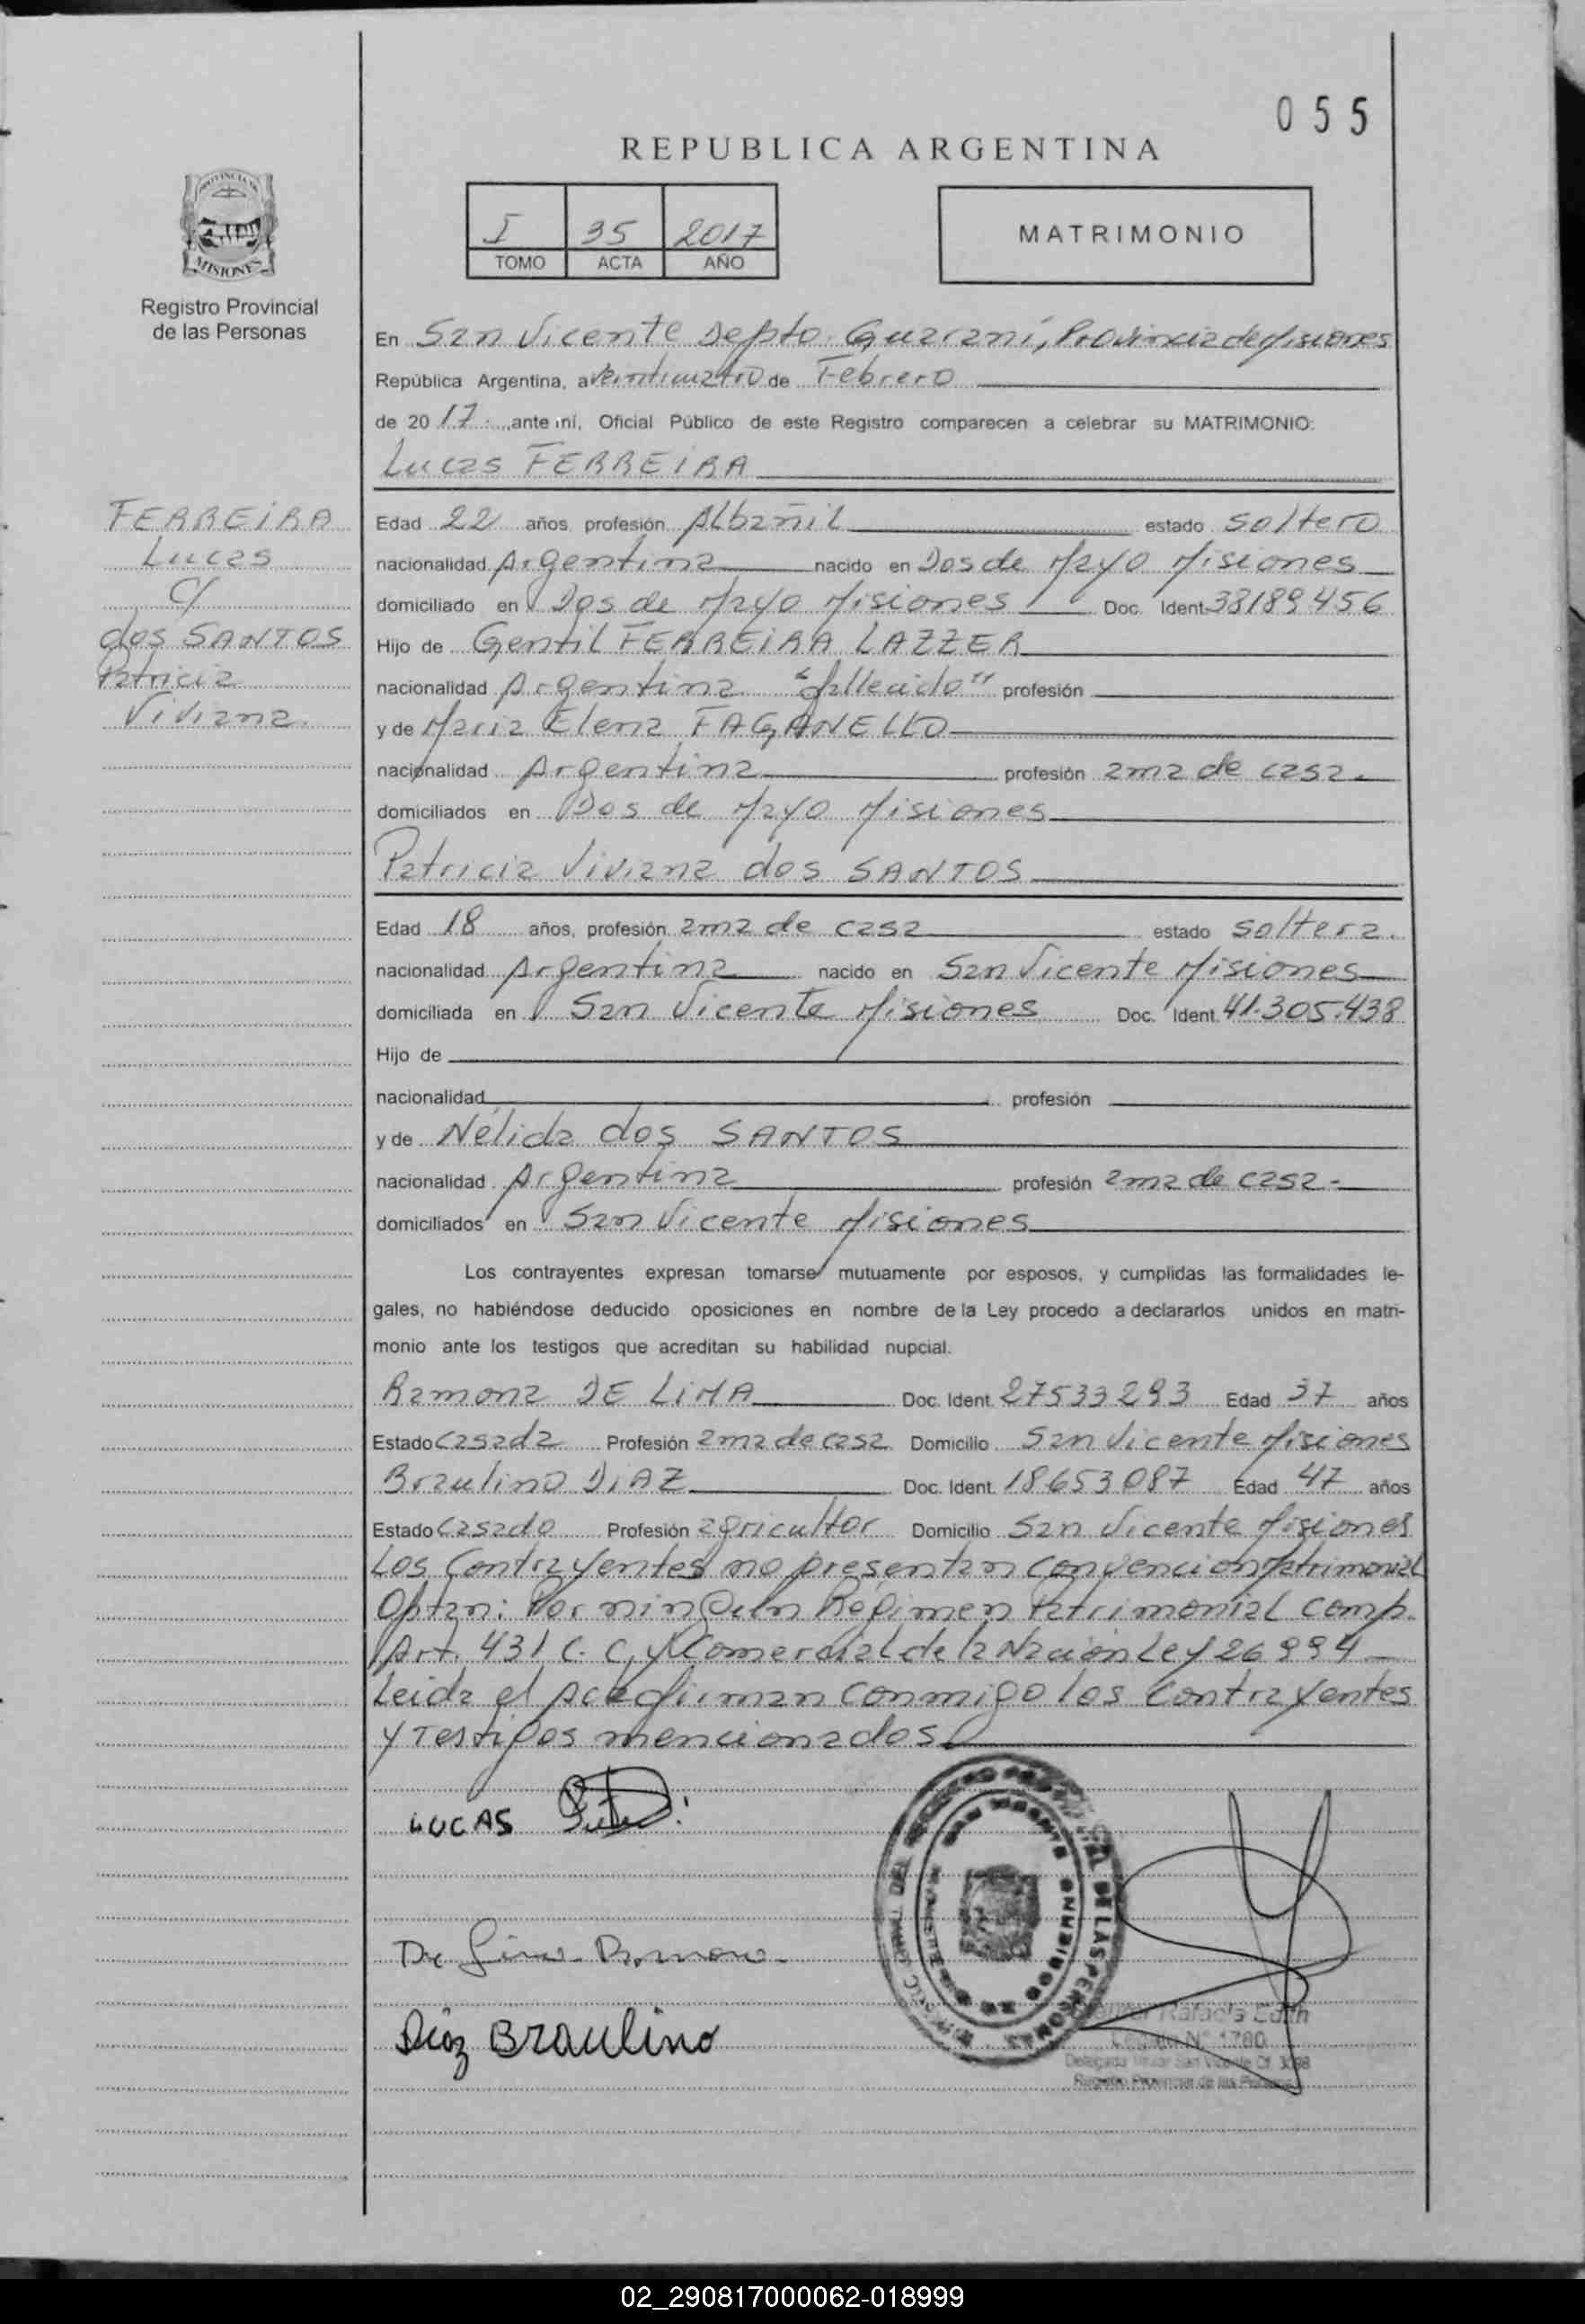 055
REPUBLICA ARGENTINA
I 35 2017
TOMO ACTA AÑO
MATRIMONIO
PROVINCIA DE
MISIONES
Registro Provincial
de las Personas
FERREIRA
Lucas
C/
dos SANTOS
Patricia
Viviana.
En San Vicente Depto. Guaraní, Provincia de Misiones
República Argentina, a veinticuatro de Febrero
de 20 17 ante mí, Oficial Público de este Registro comparecen a celebrar su MATRIMONIO:
Lucas FERREIRA
Edad 22 años profesión Albañil estado soltero
nacionalidad Argentina nacido en Dos de Mayo Misiones
domiciliado en Dos de Mayo Misiones Doc. Ident. 38189456
Hijo de Gentil FERREIRA LAZZER
nacionalidad Argentina "fallecido" profesión
y de Maria Elena FAGANELLO
nacionalidad Argentina profesión ama de casa.
domiciliados en Dos de Mayo Misiones
Patricia Viviana dos SANTOS
Edad 18 años, profesión ama de casa estado soltera.
nacionalidad Argentina nacido en San Vicente Misiones
domiciliada en San Vicente Misiones Doc. Ident. 41.305.438
Hijo de
nacionalidad profesión
y de Nélida dos SANTOS
nacionalidad Argentina profesión ama de casa-
domiciliados en San Vicente Misiones
Los contrayentes expresan tomarse mutuamente por esposos, y cumplidas las formalidades le-
gales, no habiéndose deducido oposiciones en nombre de la Ley procedo a declararlos unidos en matri-
monio ante los testigos que acreditan su habilidad nupcial.
Ramona DE LIMA Doc. Ident. 27533293 Edad 37 años
Estado Casada Profesión ama de casa Domicilio San Vicente Misiones
Braulino DIAZ Doc. Ident. 18653087 Edad 47 años
Estado Casado Profesión agricultor Domicilio San Vicente Misiones
Los Contrayentes no presentan convencion Patrimonial
Optan: Por ningun Regimen Patrimonial comp.
Art. 431 C. C. y Comercial de la Nación Ley 26994
Leida el Acta firman conmigo los Contrayentes
y Testigos mencionados
LUCAS
De Lima Ramona
Diaz Braulino
DE LAS PERSONAS
Rafaela Edith
Legajo N° 1780
Delegada Titular San Vicente Of. 3098
Registro Provincial de las Personas
02_290817000062-018999